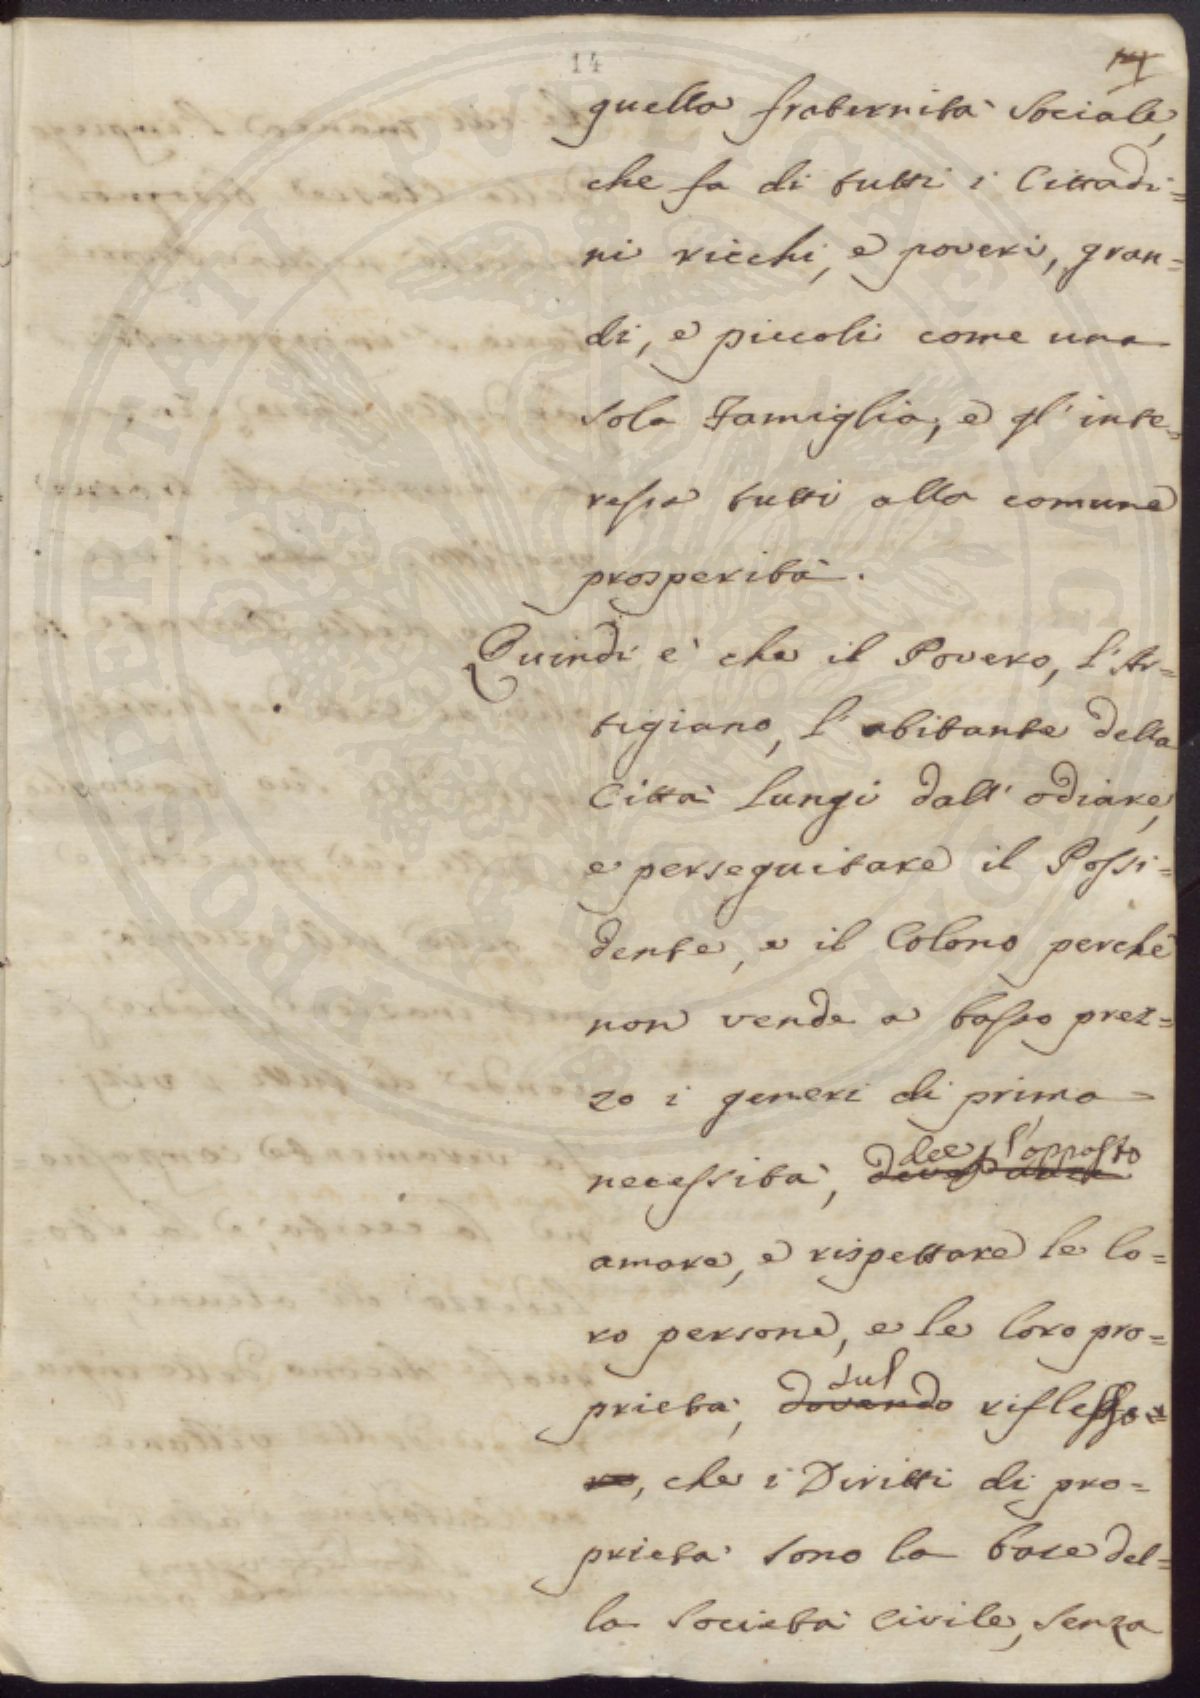 14
quella fraternità Sociale,
che fa di tutti i Cittadi=
ni ricchi, e poveri, gran=
di, e piccoli come una
sola Famiglia, e gl' inte=
ressa tutti alla comune
prosperità.
Quindi e' che il Povero, l'Ar=
tigiano, l'abitante della
Città lungi dall' odiare,
e perseguitare il Possi=
dente, e il Colono perchè
non vende a basso prez=
zo i generi di prima
dee l'opposto
necessità,
amare, e rispettare le lo=
ro persone, e le loro pro=
sul
prietà, dovendo riflesso
che i Diritti di pro=
prietà sono la base del=
la Società Civile, senza
PROSPERITATI PVBLICAE